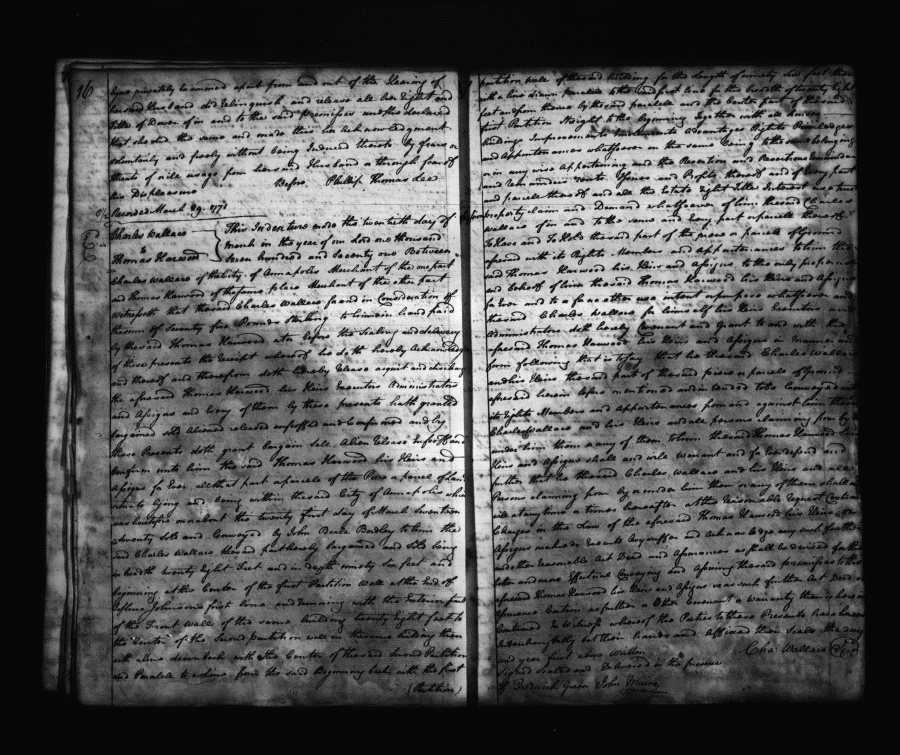 16
being privately examined apart from and out of the Hearing of
her said Husband did relinquish and release all her Right and
title of Dower of in and to the said premisses and she declared
that she did the same and made this her Acknowledgment
voluntarily and freely without being Induced thereto by fears or
threats of ill usage from her said Husband or through fear of
his Displeasure
Before Phillip Thomas Lee
Recorded March 29. 1771
Charles Wallace
to
Thomas Harwood
This Indenture made the twentieth day of
March in the year of our Lord one thousand
seven hundred and seventy one Between
Charles Wallace of the City of Annapolis Merchant of the one part
and Thomas Harwood of the same place Merchant of the other part
Witnesseth that the said Charles Wallace for and in Consideration of
the sum of seventy five Pounds Sterling to him in hand paid
by the said Thomas Harwood at or before the Sealing and delivery
of these presents the Receipt whereof he doth hereby Acknowledge
and thereof and therefrom doth hereby Release acquit and discharge
the aforesaid Thomas Harwood his Heirs Executors Administrators
and Assigns and Every of them by these presents hath granted
bargained sold Aliened released enfeoffed and Confirmed and by
these Presents doth grant bargain sell Alien Release Enfeoff and
Confirm unto him the said Thomas Harwood his Heirs and
Assigns for Ever all that part or parcell of the Piece or parcel of Land
situate lying and being within the said City of Annapolis which
was on or about the twenty first day of March Seventeen
Seventy and Conveyed by John Beale Bordley to him the
said Charles Wallace the said part hereby bargained and Sold being
in breadth twenty Eight Feet and in depth ninety six feet and
beginning at the Center of the first Partition Wall at the End of
Johnson's first line and running with the Exterior part
of the Front Wall of the same building twenty Eight feet to
the Center of the Second partition wall in the same building then
with a line drawn back with the Center of the said second Partition
and Parallel to a line from the said Beginning back with the first
(Partition)
partition wall of the said building for the length of ninety six feet then
with a line drawn parallel to the said first line for the breadth of twenty Eight
feet and from thence by the said parallel and the Center part of the said
first Partition straight to the beginning Together with all
buildings Improvements advantages Rights Priviledges
and appurtenances whatsoever on the same being to the same belonging
or in any wise Appertaining and the Reversion and Reversions remainder
and Remainders Rents Issues and Profits thereof and of Every part
and parcell thereof and all the Estate Right Title Interest use trust
property claim and Demand whatsoever of him the said Charles
Wallace of in and to the same and Every part or parcell thereof
To Have and To Hold the said part of the piece or parcele of Ground
aforesaid with its Rights Members and appurtenances to him the
said Thomas Harwood his Heirs and assigns to the only proper use
and Behoof of him the said Thomas Harwood his Heirs and Assigns
for Ever and to & for no other use intent or purpose whatsoever and
the said Charles Wallace for himself his Heirs Executors and
Administrators doth hereby Covenant and Grant to and with the
aforesaid Thomas Harwood his Heirs and Assigns in manner and
form following that is to say that he the said Charles Wallace
and his Heirs the said part of the said piece or parcele of Ground
aforesaid herein before mentioned and intended to be Conveyed with
its Rights Members and appurtenances from and against him the said
Charles Wallace and his Heirs and all persons claiming from by or
under him them or any of them to him the said Thomas Harwood his
Heirs and Assigns shall and will Warrant and for Ever defend and
further that he the said Charles Wallace and his Heirs and all
Persons claiming from by or under him them or any of them shall and
will at any time or times hereafter at the reasonable request Costs and
Charges in the Law of the aforesaid Thomas Harwood his Heirs or
Assigns make do Execute levy suffer and Acknowledge any such further
and other reasonable Act Deed and Assurances as shall be devised for the
better and more Effectual Conveying and Assuring the said premisses to the
aforesaid Thomas Harwood his Heirs and Assigns so as such further Act Deed or
Assurance Contain no further or Other Covenant or Warranty than is herein
Contained In Witness whereof the Parties to these Presents have hereunto
Interchangeably set their hands and Affixed their Seals the day
and year first above Written
Cha: Wallace (Seal)
Signed Sealed and Delivered in the presence
of Frederick Green John Muir